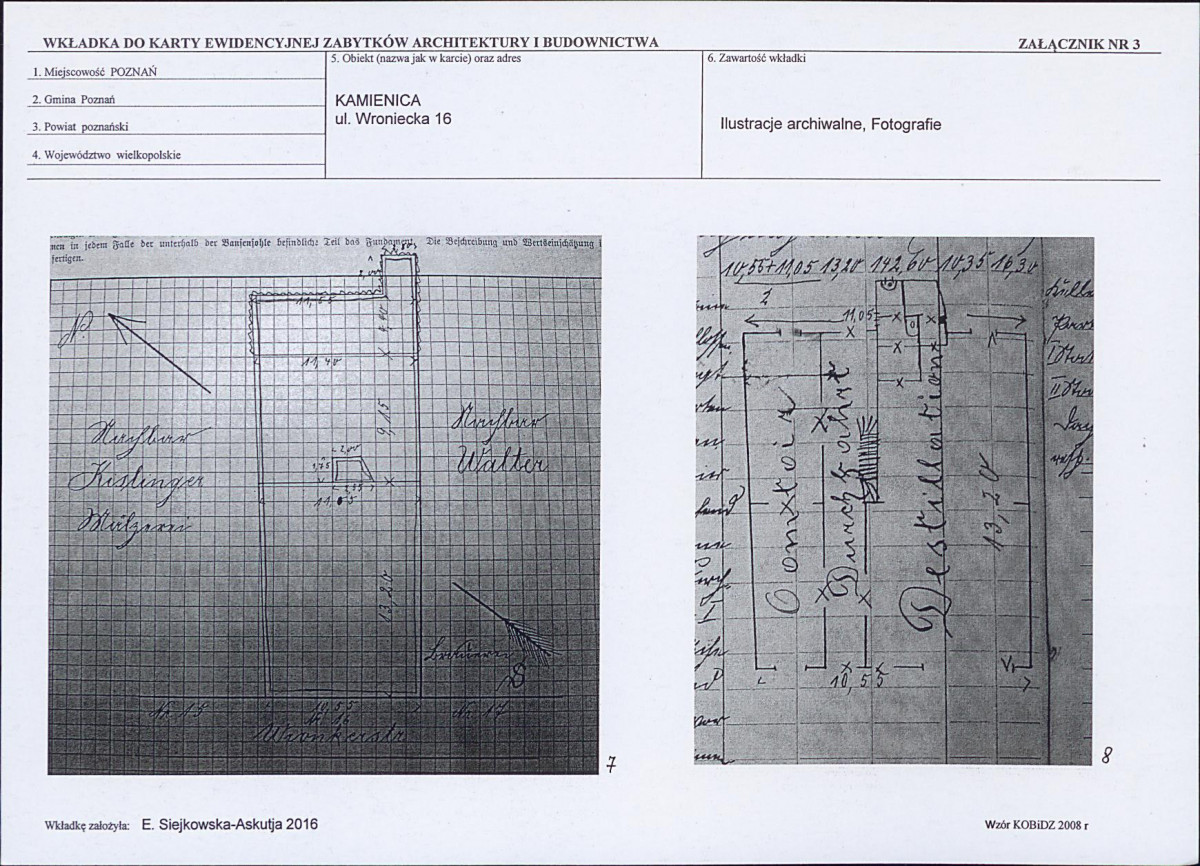 WKŁADKA DO KARTY EWIDENCYJNEJ ZABYTKÓW ARCHITEKTURY I BUDOWNICTWA
ZAŁĄCZNIK NR 3
1. Miejscowość POZNAŃ
2. Gmina Poznań
3. Powiat poznański
4. Województwo wielkopolskie
5. Obiekt (nazwa jak w karcie) oraz adres
KAMIENICA
ul. Wroniecka 16
6. Zawartość wkładki
Ilustracje archiwalne, Fotografie
nen in jedem Falle der unterhalb der Bausensohle befindliche Teil das Fundament. Die Beschreibung und Werteinschätzung
fertigen.
11,55
N.
11,40
Nachbar
Kislinger
Mälzerei
9,15
Nachbar
Walter
2,00
11,05
13,20
Brauerei
S
Nr. 15
10,55
Nr. 16
Nr. 17
Wronkerstr
7
10,55+11,05 13,20 142,60 10,35 16,30
2
11,05
Comptoir
Durchfahrt
Destillation
13,20
10,55
8
Wkładkę założyła: E. Siejkowska-Askutja 2016
Wzór KOBiDZ 2008 r